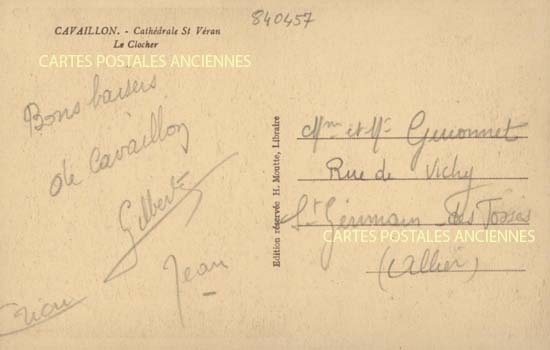 840457
CAVAILLON. - Cathédrale St Véran
Le Clocher
CARTES POSTALES ANCIENNES
Bons baisers
de Cavaillon
Gilberte
Jean
Edition réservée H. Moutte, Libraire
Mme et Mr Guionnet
Rue de Vichy
St Germain des Fossés
CARTES POSTALES ANCIENNES
(Allier)